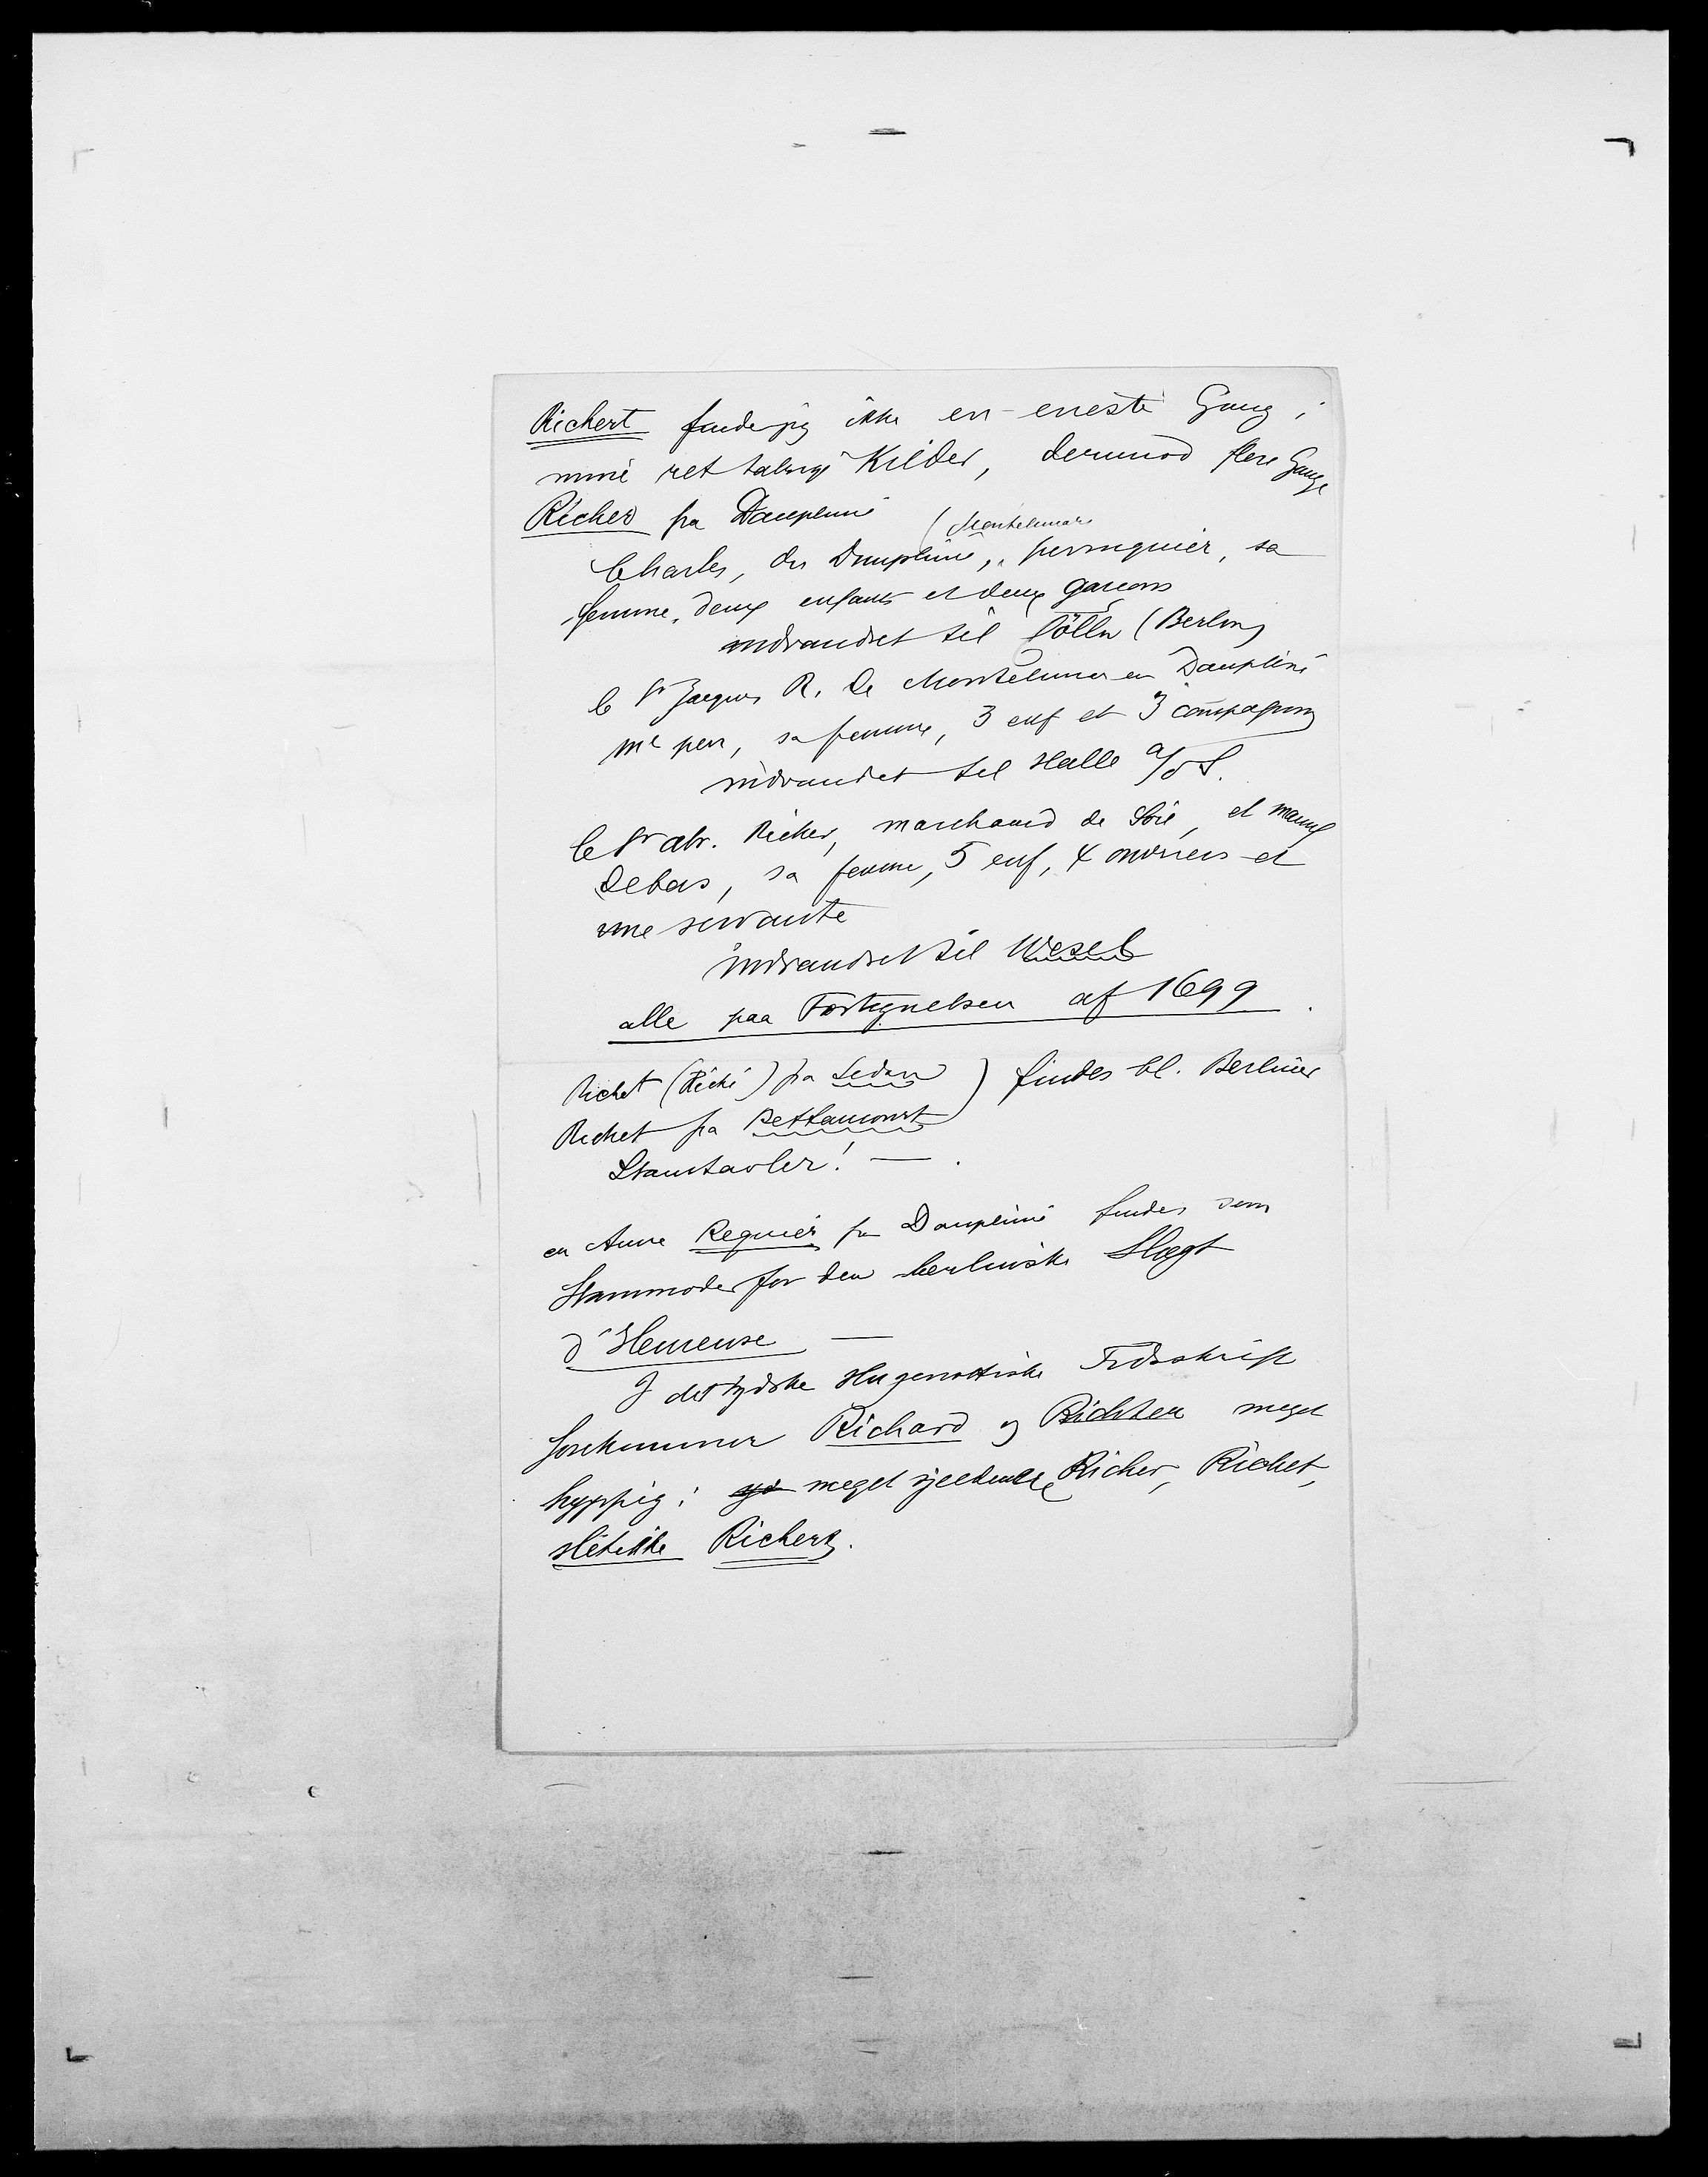 Richert finder jeg ikke en eneste Gang i
mine ret talrige Kilder, derimod flere Gange
Richer fra Dauphiné
(Montelimar
Charles, du Dauphiné, perruquier, sa
femme, deux enfants et deux garcons
indvandret til Cölln (Berlin)
le Sr Jacques R. de Montelimar en Dauphiné
me per, sa femme, 3 enf et 3 compagnons
indvandret til Halle a/d S.
le Sr abr. Richer, marchand de Soie, et manuf
debas, sa femme, 5 enf, 4 ouvriers et
une servante
indvandret til Wesel
alle paa Fortegnelsen af 1699.
Richet (Riché) fra Sedan ) findes bl. Berliner
Richet fra Bettancourt )
Stamtavler! — .
en Anne Requier fra Dauphiné findes som
Stammoder for den berlinske Slægt
d'Heureuse —
I det tydske Hugenottiske Tidsskrift
forekommer Richard og Richter meget
hyppig; meget sjeldnere Richer, Richet,
slet ikke Richert.